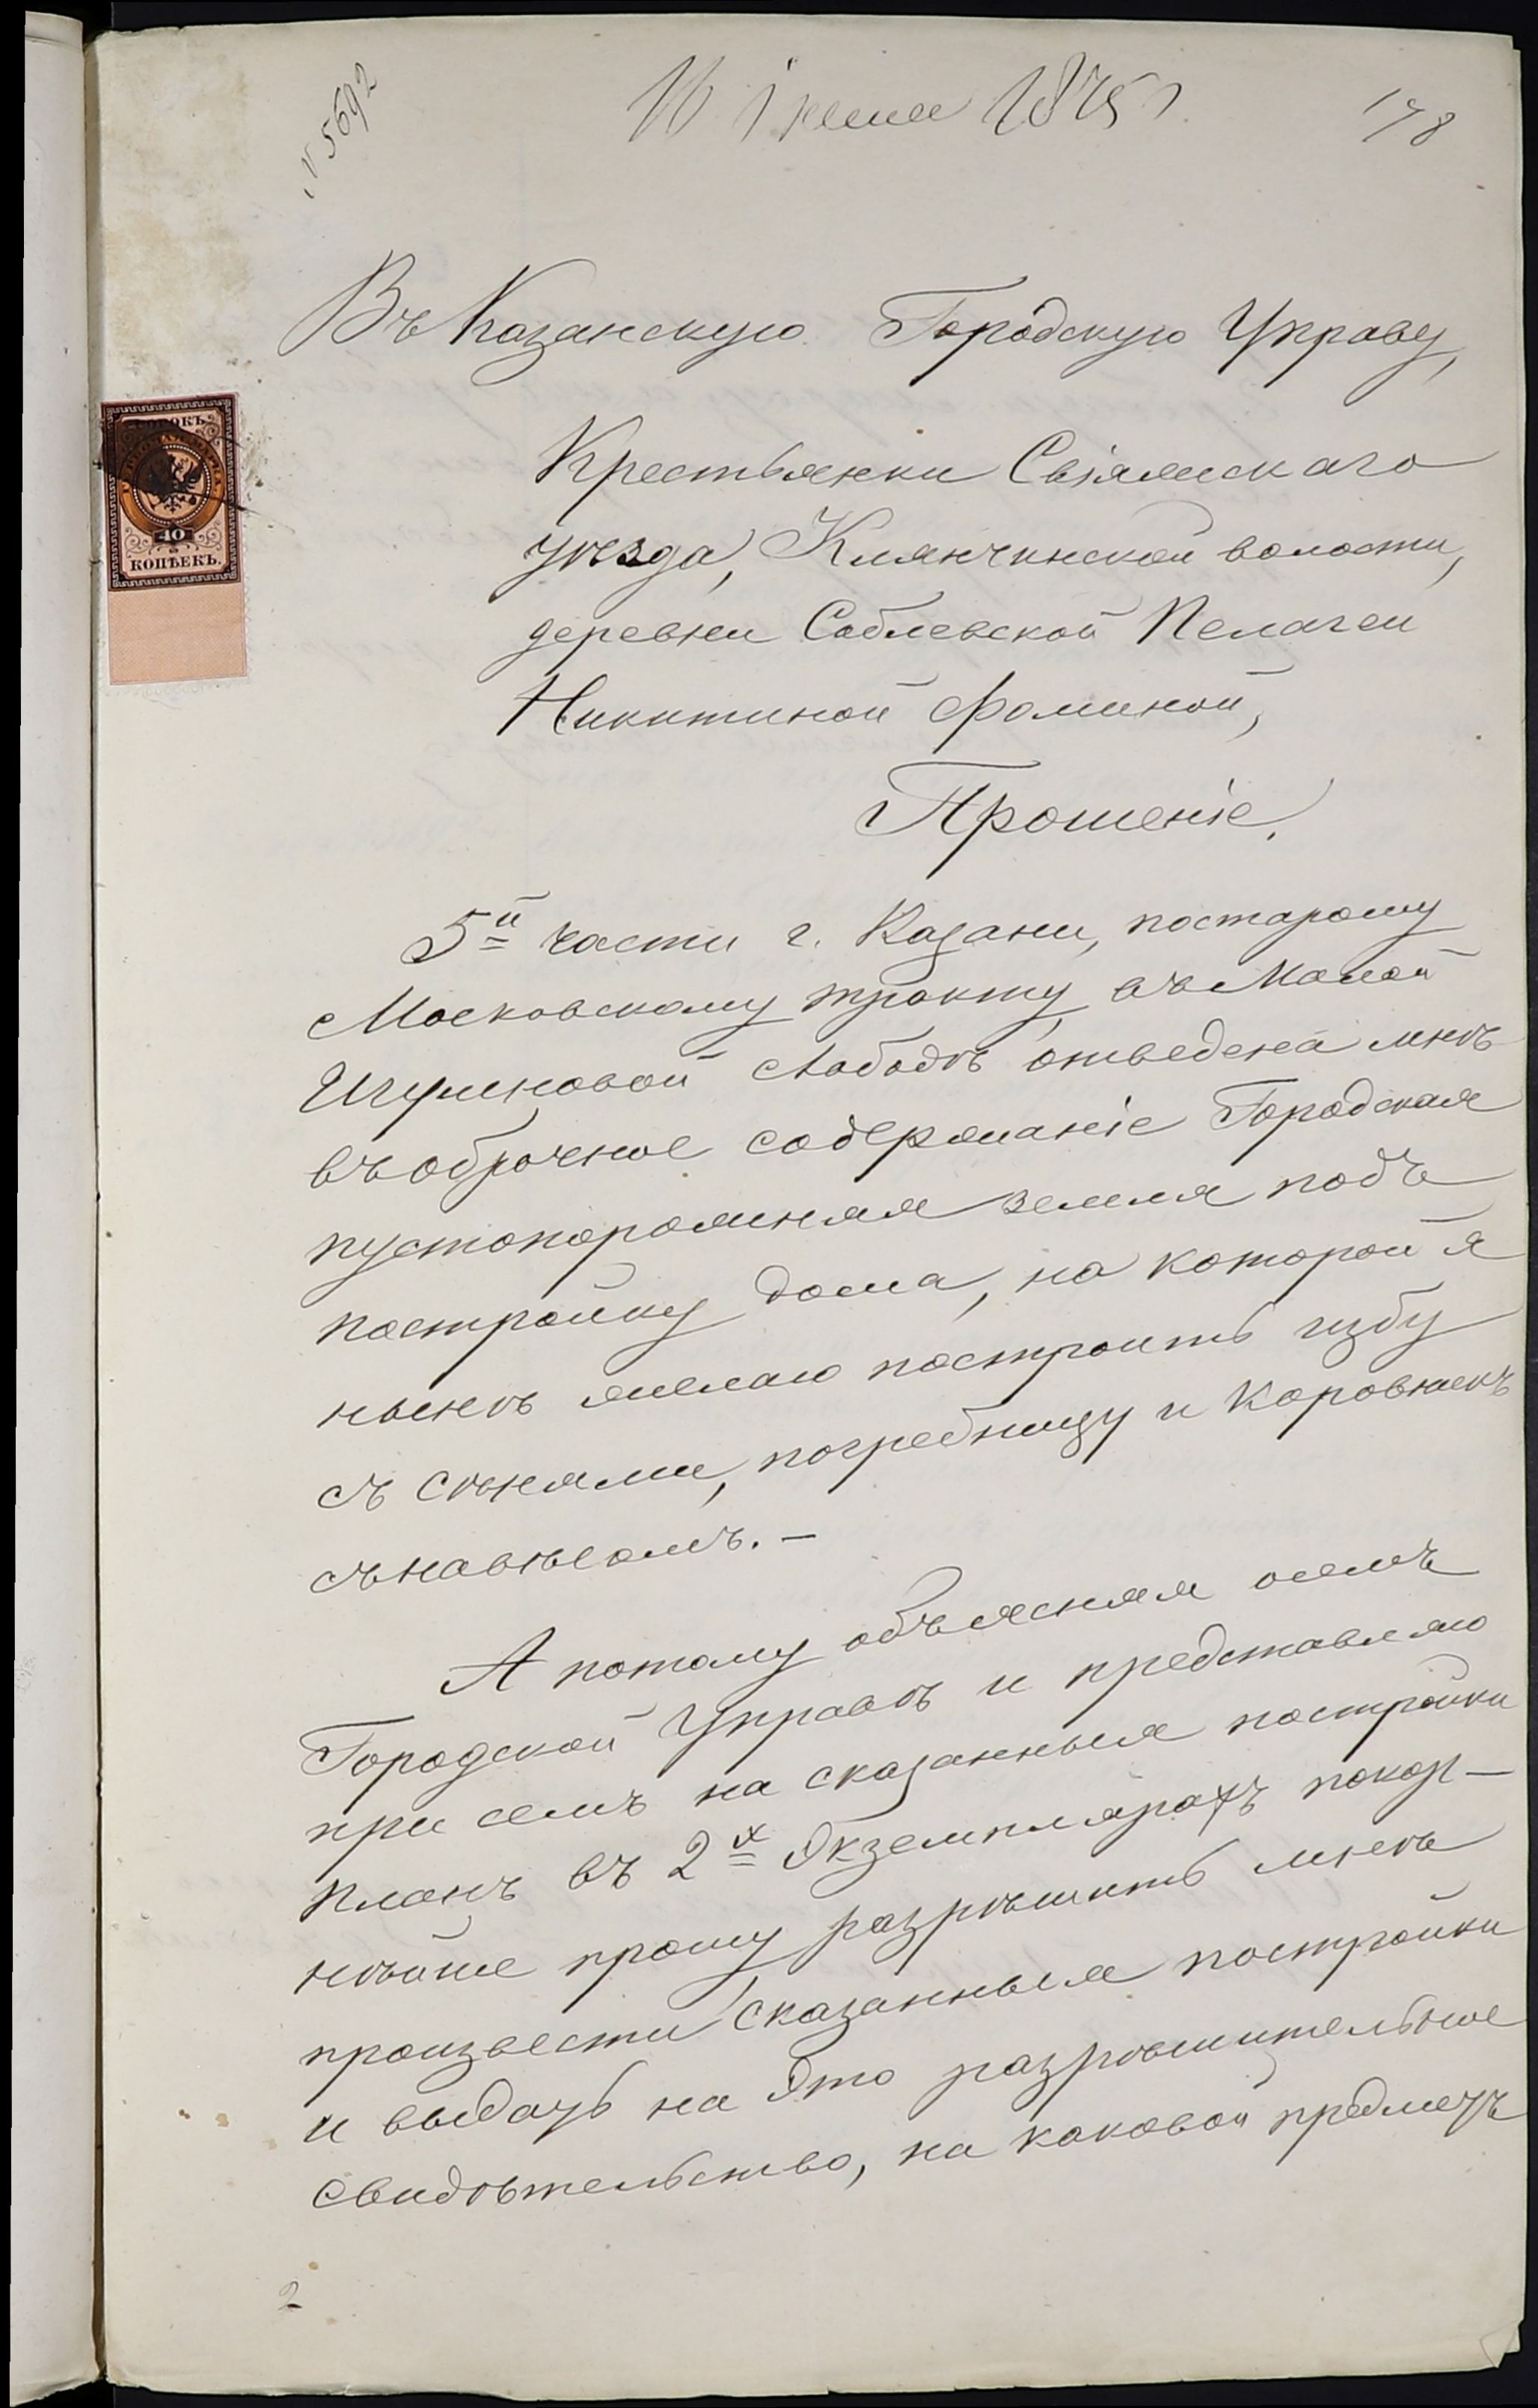 № 5692
16 Іюня 1875 г.
178
Въ Казанскую Городскую Управу,
СОРОКЪ
40
КОПѢЕКЪ.
Крестьянки Свіяжскаго
уѣзда, Клянчинской волости,
деревни Соблевской Пелагеи
Никитиной Фоминой,
Прошеніе.
5й части г. Казани, постарому
Московскому тракту въ Малой
Игумновой слободѣ отведена мнѣ
въ оброчное содержаніе Городская
пустопорожняя земля подъ
постройку дома, на которой я
нынѣ желаю построить избу
съ сѣнями, погребницу и коровникъ
съ навѣсомъ. —
А потому объясняя осемъ
Городской Управѣ и представляю
при семъ на сказанныя постройки
планъ въ 2х Экземплярахъ покор-
нѣйше прошу разрѣшить мнѣ
произвести сказанныя постройки
и выдать на Это разрѣшительное
свидѣтельство, на каковой предметъ
2